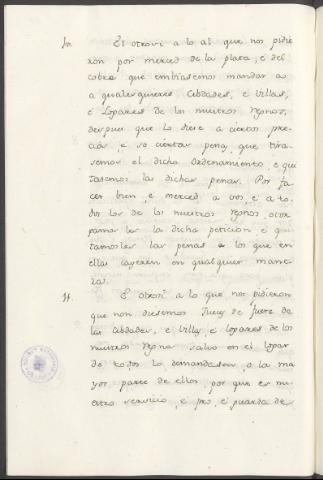 10. El otrosi a lo al que nos pidie
ron por merced de la plata, e del
cobre que embiasemos mandar a
a qualesquieres Cibdades, e Villas,
e Logares de los nuestros regnos,
despues que lo diese a ciertos pre
cios, e so ciertas penas, que tira
semos el dicho Ordenamiento, e qui
tasemos las dichas penas. Por fa
cer bien, e merced a vos, e a to
dos los de los nuestros regnos, otor
gamosles la dicha peticion e qui
tamosles las penas a los que en
ellas cayeren en qualquier mane
ra.
11. E otrosi a lo que nos pidieron
que non diesemos Jueces de fuera de
las Cibdades, e Villas e Logares de los
nuestros regnos salvo en el Logar
do todos lo demandasen, o la ma
yor parte de ellos, por que es nu
estro servicio, e pro, e guarda de